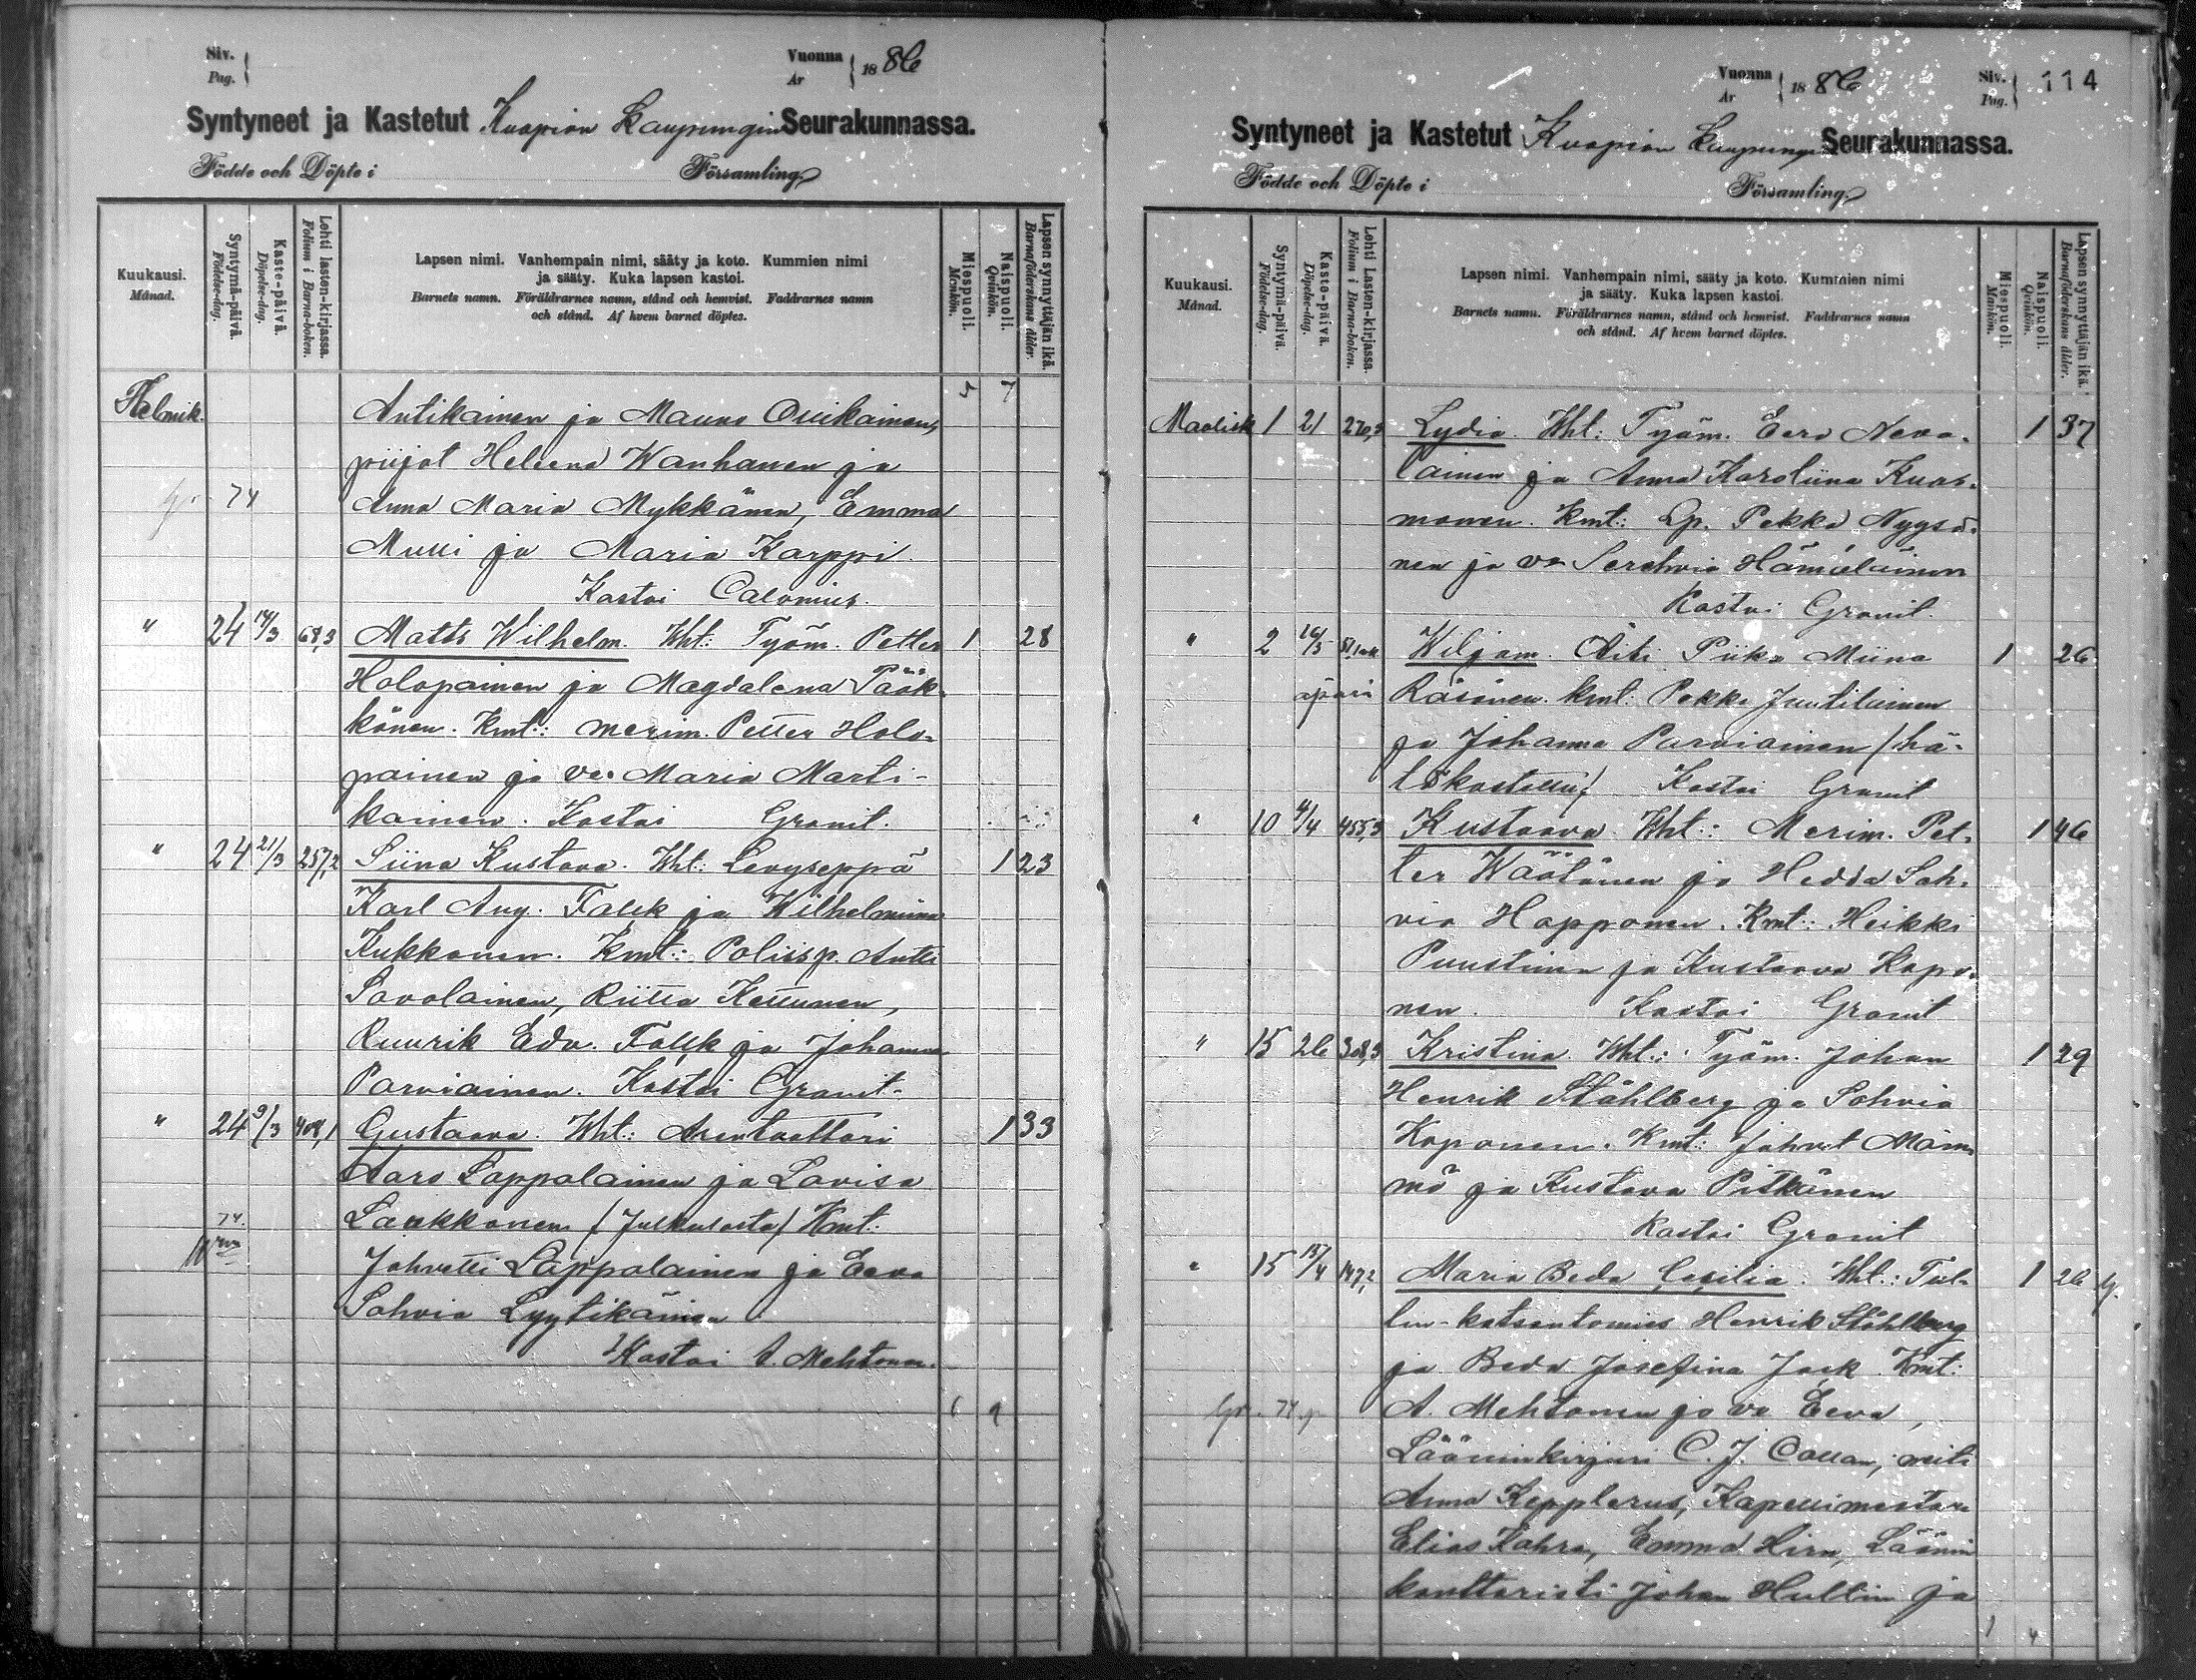 Siv.
Pag.
Vuonna
Ar
1886
Syntyneet ja Kastetut Kuopion Kaupungin Seurakunnassa.
Födde och Döpte i Församling.
Kuukausi.
Månad.
Syntymä-päivä.
Födelse-dag.
Kaste-päivä.
Döpelse-dag.
Lehti lasten-kirjassa.
Folium i Barna-boken.
Lapsen nimi. Vanhempain nimi, sääty ja koto. Kummien nimi
ja sääty. Kuka lapsen kastoi.
Barnets namn. Föräldrarnes namn, stånd och hemvist. Faddrarnes namn
och stånd. Af hvem barnet döptes.
Miespuoli.
Mankön.
Naispuoli.
Qvinkön.
Lapsen synnyttäjän ikä.
Barnaföderskans ålder.
Helmik. Antikainen ja Mauno Ouikainen,
piijat Heleena Wanhanen ja
74 Anna Maria Mykkänen, Emma
Mulli ja Maria Karppi.
Kastoi Calonius.
" 24 14/3 68,3 Matts Wilhelm. Wht: Työm. Petter 1 28
Holopainen ja Magdalena Pääk-
könen. Kmt: merim. Petter Holo-
painen ja vo Maria Marti-
kainen. Kastoi Granit.
" 24 21/3 257,2 Siina Kustava. Wht: Levyseppä 1 23
Karl Aug. Falck ja Wilhelmiina
Kukkonen. Kmt: Poliisp. Antti
Savolainen, Riitta Kettunen,
Ruurik Edv. Falck ja Johanna
Parviainen. Kastoi Granit.
" 24 9/3 408,1 Gustaava. Wht: Arentvattari 1 33
Aaro Lappalainen ja Lovisa
74. Laukkonen (Julkulasta) Kmt:
Johvetti Lappalainen ja Eeva
Sohvia Lyytikäinen
Kastoi A. Mehtonen.
6 9
Vuonna
Ar
1886
Siv.
Pag.
114
Syntyneet ja Kastetut Kuopion Kaupungin Seurakunnassa.
Födde och Döpte i Församling.
Kuukausi.
Månad.
Syntymä-päivä.
Födelse-dag.
Kaste-päivä.
Döpelse-dag.
Lehti Lasten-kirjassa.
Folium i Barna-boken.
Lapsen nimi. Vanhempain nimi, sääty ja koto. Kummien nimi
ja sääty. Kuka lapsen kastoi.
Barnets namn. Föräldrarnes namn, stånd och hemvist. Faddrarnes namn
och stånd. Af hvem barnet döptes.
Miespuoli.
Mankön.
Naispuoli.
Qvinkön.
Lapsen synnyttäjän ikä.
Barnaföderskans ålder.
Maalisk 1 21 270,3 Lydia. Wht: Työm. Eero Neva- 1 37
lainen ja Anna Karoliina Kuos-
monen. Kmt: Lp. Pekka Nygså-
nen ja vo Serahvia Hämäläinen
Kastoi Granit.
" 2 16/5 Wiljam. Äiti Piika Miina 1 26
äpärä Räsänen. Kmt: Pekka Juutilainen
ja Johanna Parviainen (hä-
täkastettu) Kastoi Granit
" 10 4/4 455,3 Kustaava. Wht: Merim. Pet- 1 46
ter Wäätänen ja Hedda Soh-
via Happonen. Kmt: Heikki
Puustinen ja Kustaava Kapo-
nen. Kastoi Granit
" 15 26 308,3 Kristina. Wht: Työm. Johan 1 29
Henrik Ståhlberg ja Sohvia
Koponen. Kmt: Johvet Mäm-
mö ja Kustava Pitkänen
Kastoi Granit
" 15 15/4 147,2 Maria Beda Cecilia. Wht: Tul- 1 26
lin-katsontomies Henrik Ståhlberg
ja Beda Josefina Jack. Kmt:
A. Mehtonen ja vo Eeva,
Lääninkirjuri C. J. Collan, neiti
Anna Kepplerus, Kapellimestari
Elias Kahra, Emma Hirn, Läänin
konttoristi Johan Hultin ja
1 4